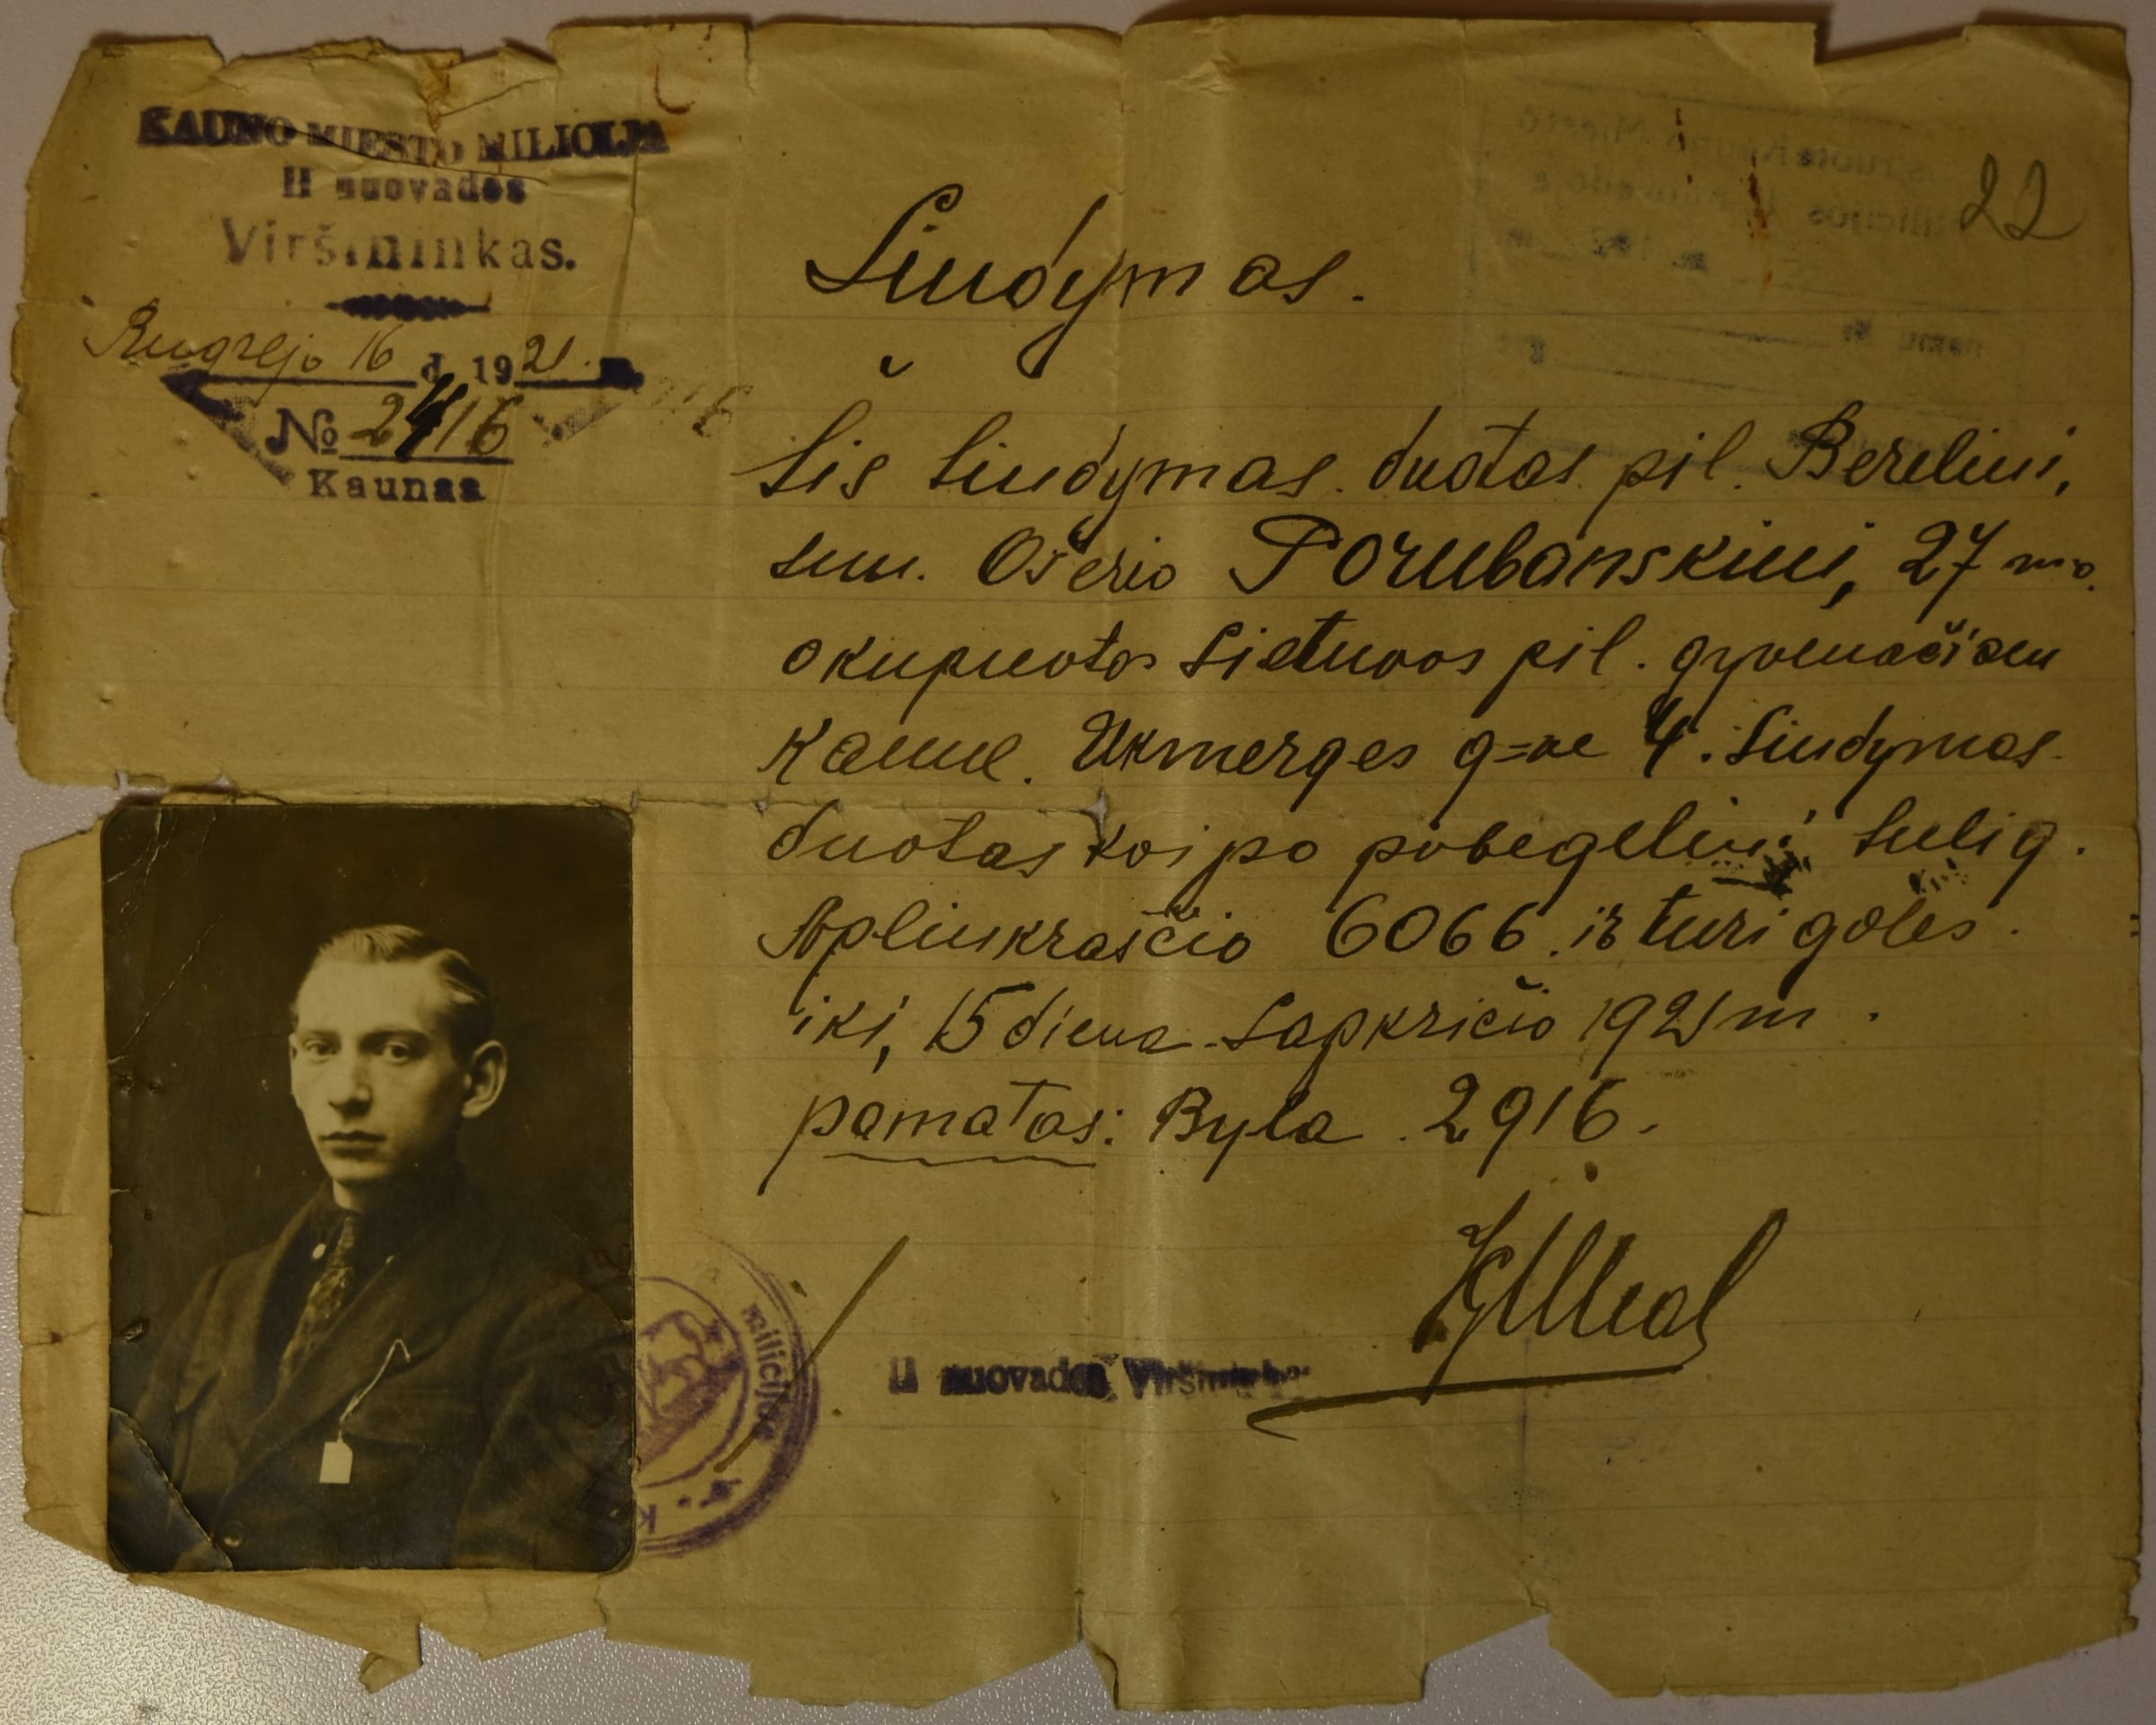 KAUNO MIESTO MILICIJA
II nuovados
Viršininkas.
Rugsėjo 16 d. 1921
№ 2416
Kaunas
22
Liudymas.
Šis liudymas duotas pil. Bereliui,
sun. Ošerio Porubanskiui, 27 m.
okupuotos Lietuvos pil. gyvenačiam
Kaune. Ukmerges g-ve 4. Liudymas
duotas kaipo pobegeliui sulig.
Aplinkraščio 6066. ir turi gales
iki, 15 diena Lapkričio 1921 m.
pamatas: Byla 2916.
II nuovados Viršininkas
milicijos